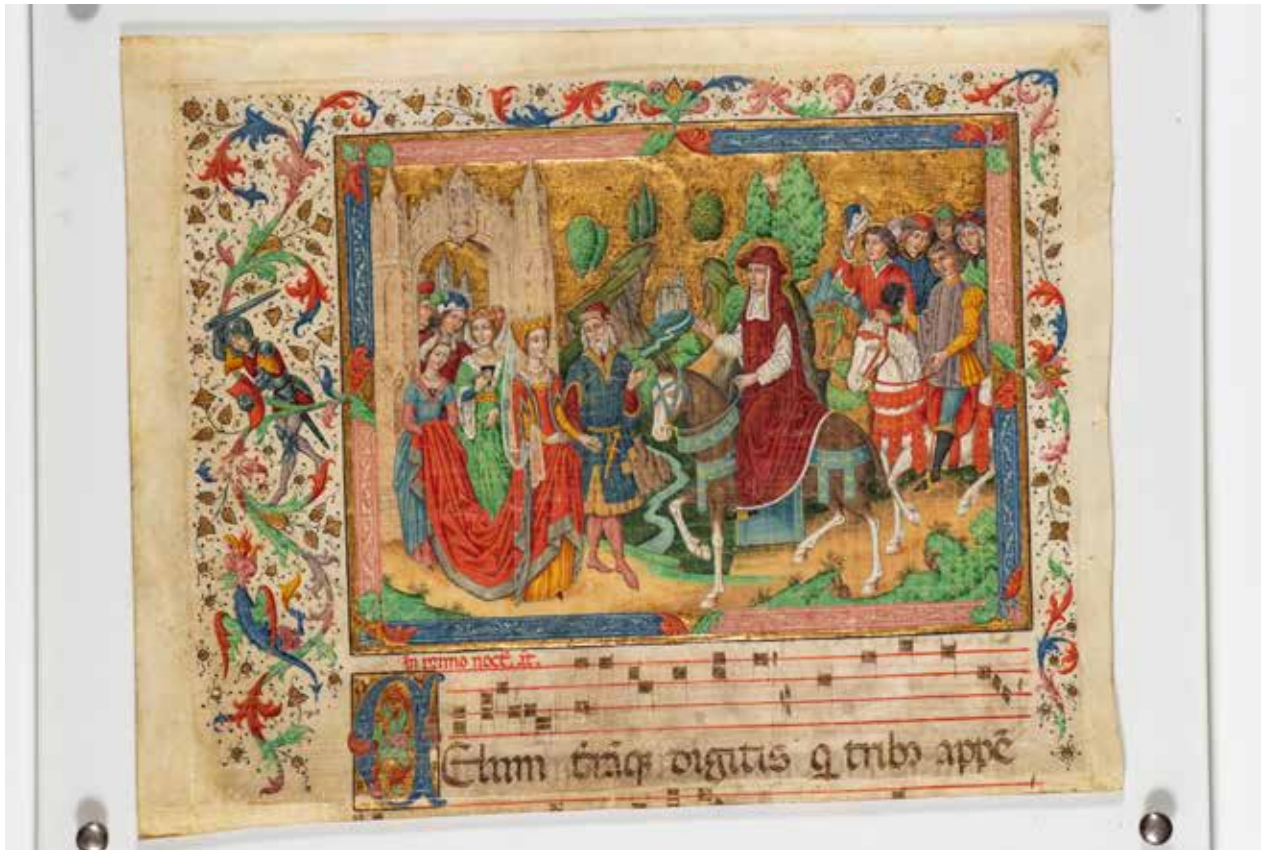 In primo noct̃. añ.
CElum t̃rãq̃ digitis q̃ tribꝰ appẽ